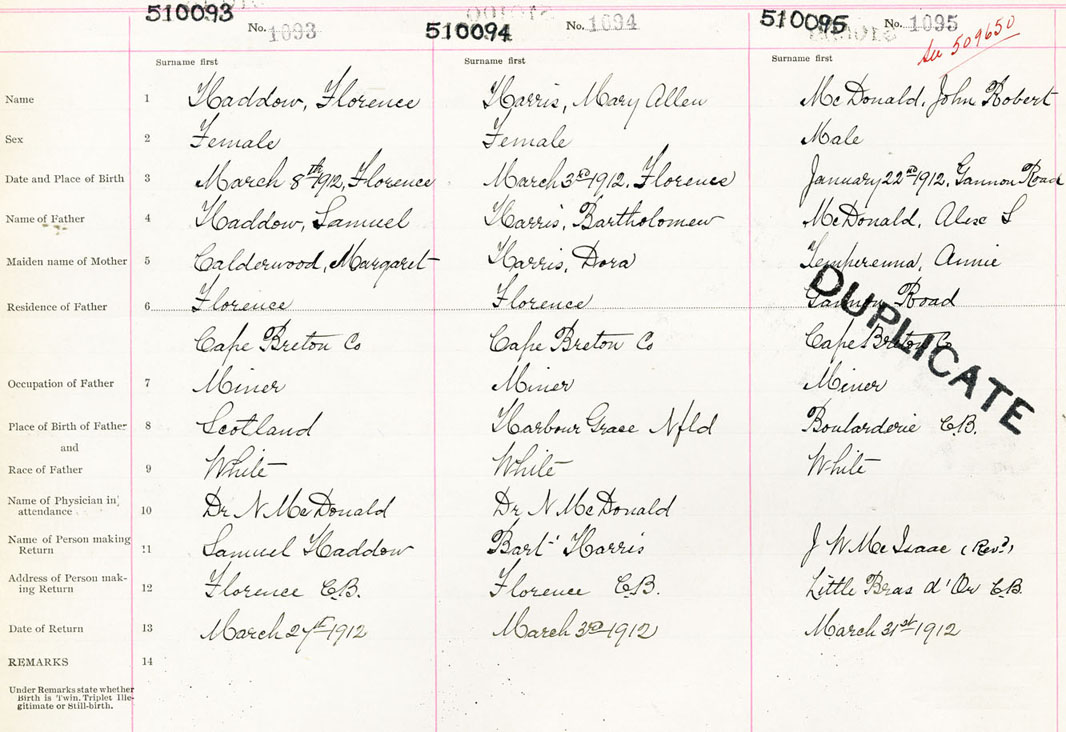 510093 No. 1093 510094 No. 1094 510095 No. 1095
See 509650
Surname first Surname first Surname first
Name 1 Haddow, Florence Harris, Mary Allen McDonald, John Robert
Sex 2 Female Female Male
Date and Place of Birth 3 March 8th 1912, Florence March 3rd 1912. Florence January 22nd 1912. Gannon Road
Name of Father 4 Haddow, Samuel Harris, Bartholomew McDonald, Alex S
Maiden name of Mother 5 Calderwood, Margaret Harris, Dora Annie
Residence of Father 6 Florence Florence Gannon Road
Cape Breton Co Cape Breton Co Cape Breton Co
DUPLICATE
Occupation of Father 7 Miner Miner Miner
Place of Birth of Father 8 Scotland Harbour Grace Nfld Boularderie C.B.
and
Race of Father 9 White White White
Name of Physician in
attendance 10 Dr N McDonald Dr N McDonald
Name of Person making
Return 11 Samuel Haddow Bart' Harris J W McIsaac (Revd)
Address of Person mak-
ing Return 12 Florence C.B. Florence C.B. Little Bras d'Or C.B.
Date of Return 13 March 27th 1912 March 3rd 1912 March 31st 1912
REMARKS 14
Under Remarks state whether
Birth is Twin, Triplet Ille-
gitimate or Still-birth.